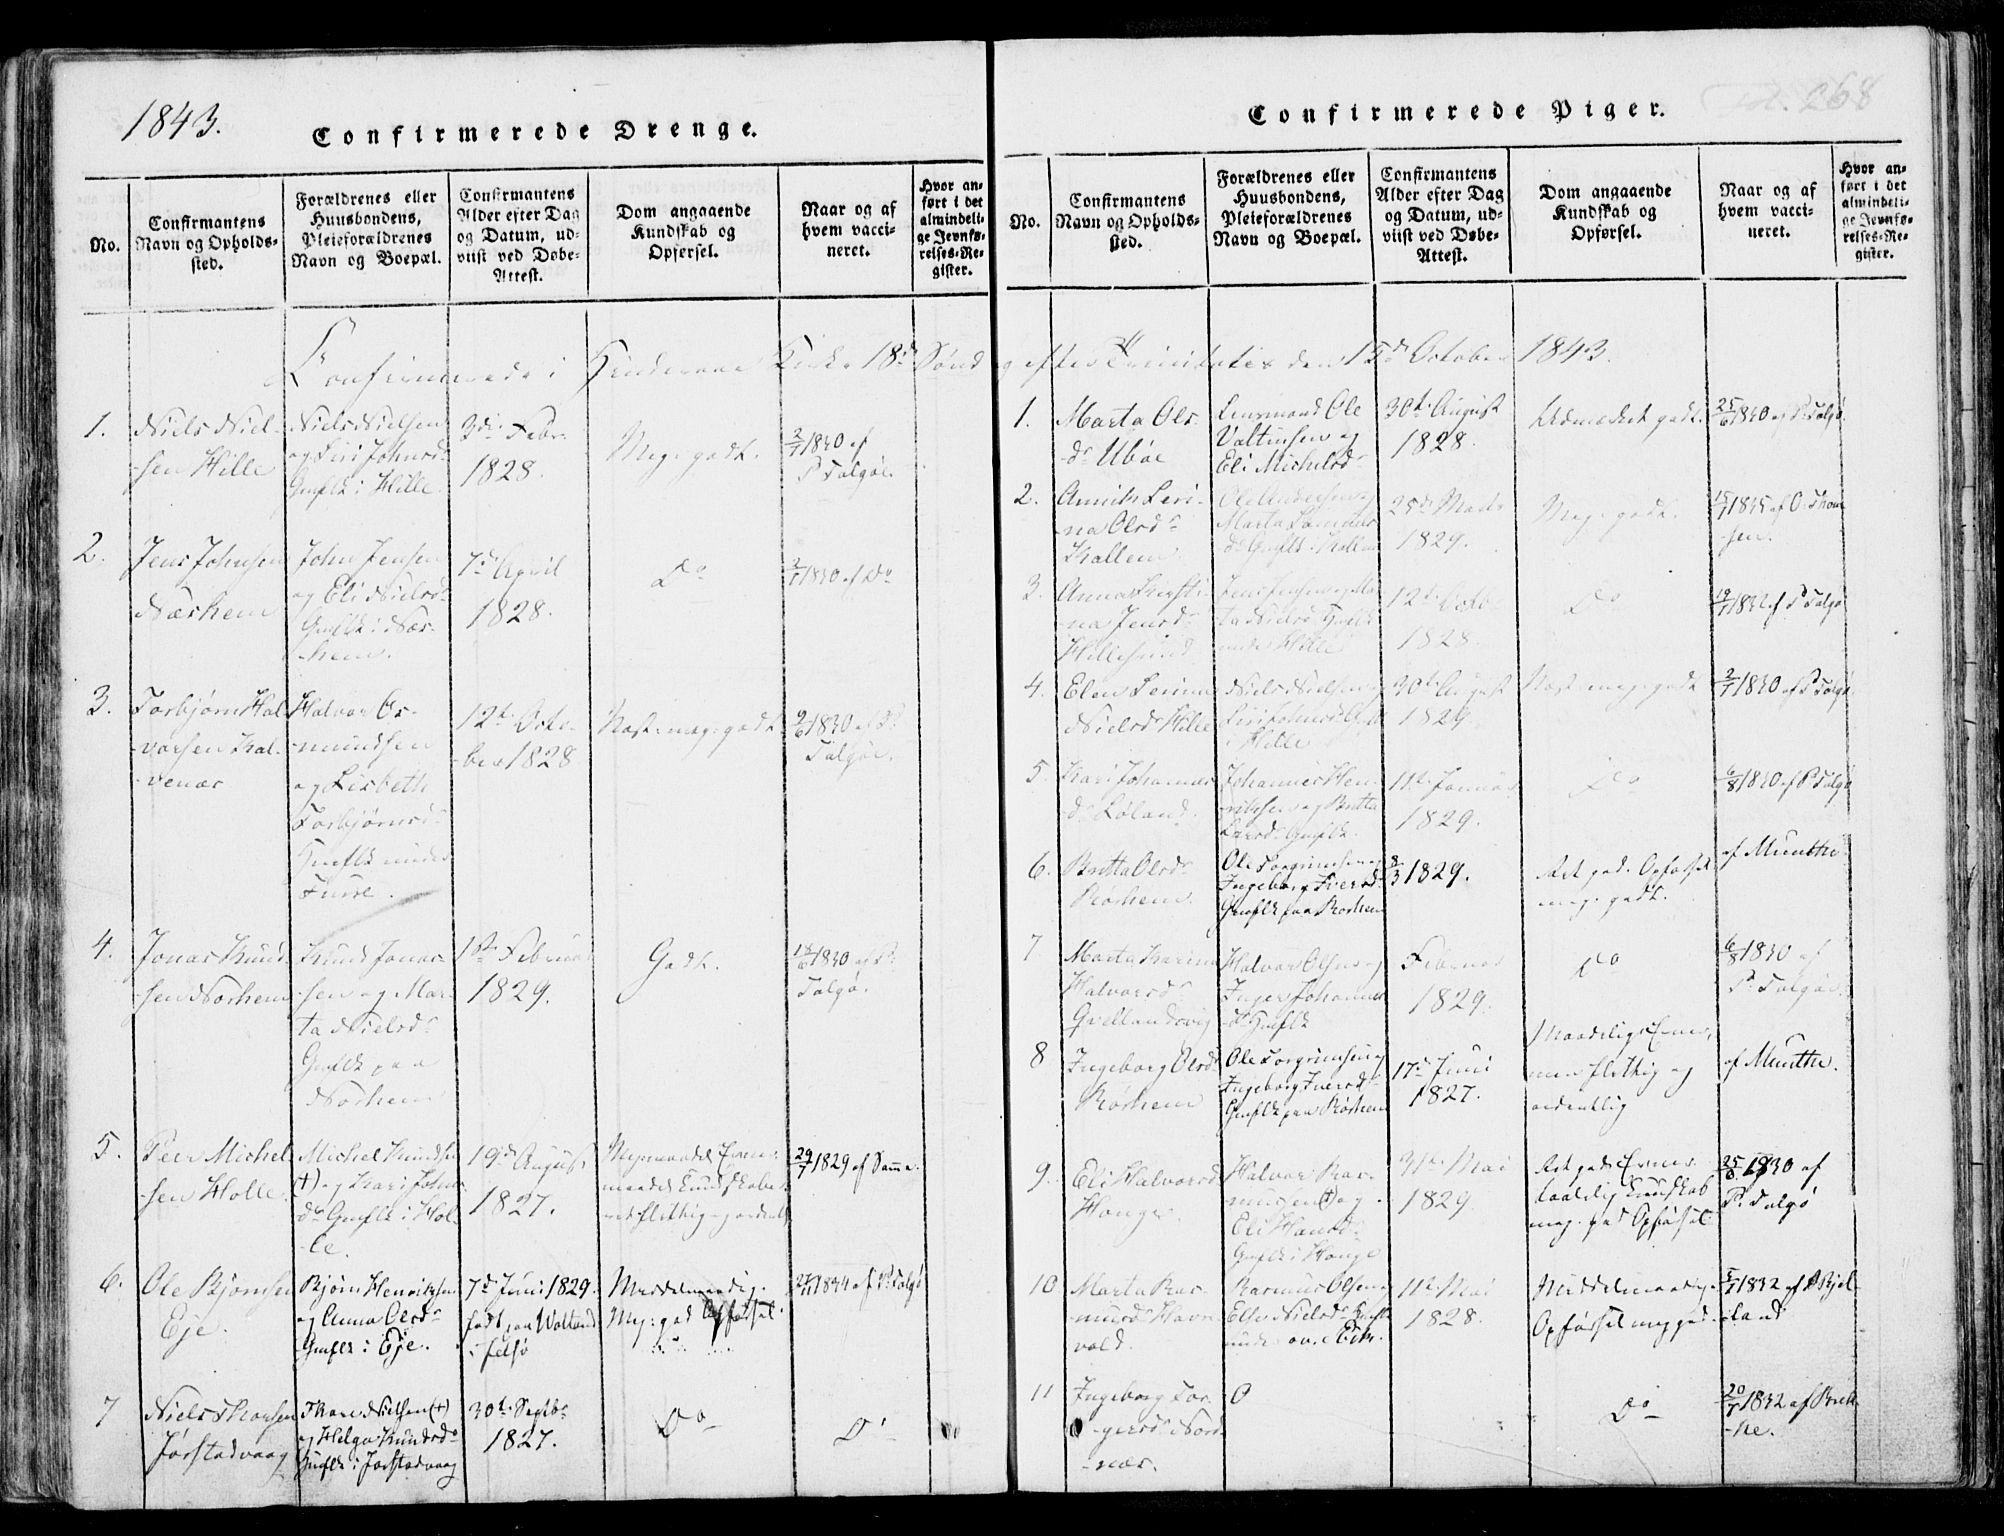 1843.
Confirmerede Drenge.
No.
Confirmantens
Navn og Opholds-
sted.
Forældrenes eller
Huusbondens,
Pleieforældrenes
Navn og Boepæl.
Confirmantens
Alder efter Dag
og Datum, ud-
viist ved Døbe-
Attest.
Dom angaaende
Kundskab og
Opførsel.
Naar og af
hvem vacci-
neret.
Hvor an-
ført i det
almindeli-
ge Jevnfø-
relses-Re-
gister.
Confirmerede i Kirke 18de Sønd
1.
Niels Niel-
-sen Hille
Niels Nielsen
og Siri Johnsd.
Gmflk i Hille.
3die Febr.
1828.
Meg: godt.
2/7 1830 af
P Talgøe.
2.
Jens Johnsen
Næshem
John Jensen
og Eli Nielsd.
Gmflk i Næs-
hem.
7de April
1828.
Do
2/7 1830 af Do
3.
Torbjørn Hal-
vorsen Kal-
-venær
Halvor Os-
mundsen
og Lisbeth
Torbjørnsd.
under
Furre.
12te Octo-
-ber 1828
Næst: meg: godt.
9/6 1830 af P.
Talgøe.
4.
Jonas Knud-
-sen Norhem
Knud Jonas-
sen og Mar-
ta Nielsd.
Gmflk paa
Norhem
1ste Februar
1829.
Godt.
18/6 1830 af P.
Talgø.
5.
Peer Michel
-sen Holle
Michel Knudsen
(+) og Kari Johns
dr Gmflk i Hol-
-le.
19de August
1827.
flittig og ordentl
29/7 1829 af Samme.
6.
Ole Bjørnsen
Eje.
Bjørn Henriksen
og Anna Olsdr
Gmflk i Eje.
7de Juni 1829.
født paa Walland
i Felsø
Middelmaadig.
Meg: god Opførsel.
1834 af P. Talgø
7
Niels Thorsen
Jørstadvaag
Thore Nielsen (+)
og Helga Knudsdr
Gmflk i Jørstadvaag
30te Septbr
1827.
Do
Do
Confirmerede Piger.
268
No.
Confirmantens
Navn og Opholds-
sted.
Forældrenes eller
Huusbondens,
Pleieforældrenes
Navn og Boepæl.
Confirmantens
Alder efter Dag
og Datum, ud-
viist ved Døbe-
Attest.
Dom angaaende
Kundskab og
Opførsel.
Naar og af
hvem vacci-
neret.
Hvor an-
ført i det
almindeli-
ge Jevnfø-
relses-Re-
gister.
efter Trinitatis den 15de October 1843.
1.
Marta Ols-
dr Ubøe
Lensmand Ole
Valtinsen og
Eli Michelsdr
30te August
1828.
Udmærket godt.
25/6 1830 af P. Talgø
2.
Olsdr
Hallem
Ole Andersen og
Marta
dr Gmflk i Hallem
25de Marts
1829.
Meg: godt.
1835 af O. Thom
-sen.
3.
Anna Kirsti-
na Jensd.
Hillesund
Jens Jensen og Mar-
ta Nielsd.
under Hille
12te Octbr
1828.
Do
19/7 1832 af P Talgø
4.
Elen Serina
Nielsdr Hille
Niels Nielsen og
Siri Johnsd.
i Hille
30te August
1829.
Næst: meg: godt
2/7 1830 af P Talgø
5.
Kari Johannes
dr Løland.
Johannes Hen-
riksen og Britta
Larsd. Gmflk.
11te Januar
1829.
Do
6/8 1830 af P Talgø
6.
Britta Olsdr
Rørhem.
Ole Torgrimsen og
Ingeborg Iversdr
Gmflk paa Rørhem
8/3 1829.
Ret god. Opførsel
meg: godt.
af Munthe.
7
Marta Karina
Halvorsdr
Halvor Olsen og
Inger Johannes
dr Gmflk
Februar
1829.
Do
6/8 1830 af
P. Talgøe.
8
Ingeborg Olsdr
Rørhem
Ole Torgrimsen og
Ingeborg Iversdr
Gmflk paa Rørhem
17de Juni
1827.
Maadelige Evner,
men flittig og
ordentlig
af Munthe.
9.
Eli Halvorsd
Houge.
Halvor Ras-
mussen (+) og
Eli Hansdr
Gmflk i Houge
31te Mai
1829
Ret gode Evner.
taalelig Kundskab
meg. god Opførsel
25/6 1830 af
P. Talgø
10
Marta Ras-
musdr Havn
vold.
Rasmus Olsen og
Else Nielsdr
under
11te Mai
1828.
Middelmaadig.
Opførsel meg god.
1832 af Bjel-
-land
11
Ingeborg Tor-
-gersdr Nord-
-nær.
O
Do
1832 af
-ke.